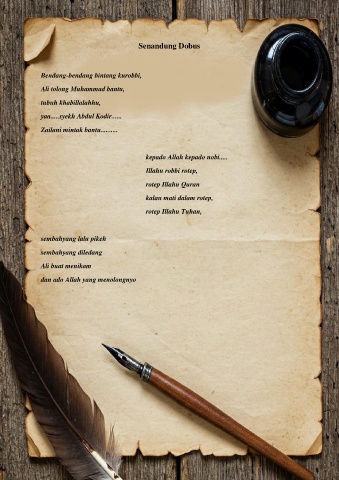 Senandung Dobus
Bendang-bendang bintang kurobbi,
Ali tolong Muhammad bantu,
tubuh khabillalahhu,
yaa.....syekh Abdul Kadir......
Zailani mintak bantu.........
kepado Allah kepado nobi.....
Illahu robbi rotep,
rotep Illahu Quran
kalau mati dalam rotep,
rotep Illahu Tuhan,
sembahyang lalu pikeh
sembahyang diledang
Ali buat menikam
dan ado Allah yang menolongnyo